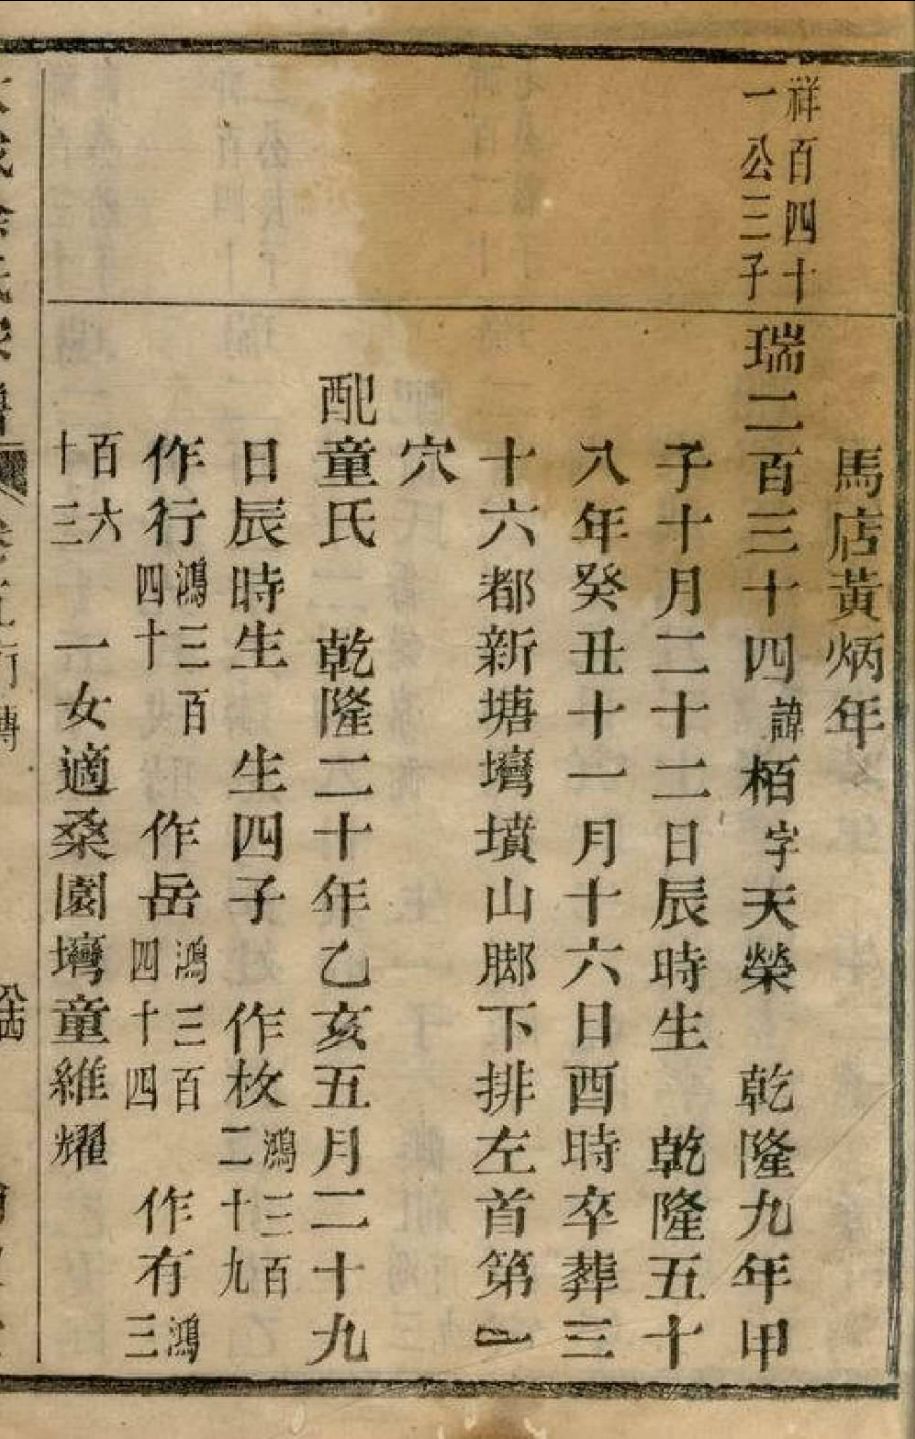 馬店黃炳年
祥百四十
一公三子
瑞二百三十四諱栢字天榮 乾隆九年甲
子十月二十二日辰時生 乾隆五十
八年癸丑十一月十六日酉時卒葬三
十六都新塘壪墳山脚下排左首第一
穴
配童氏 乾隆二十年乙亥五月二十九
日辰時生 生四子 作枚鴻三百二十九
作行鴻三百四十 作岳鴻三百四十四 作有鴻三
百六十三 一女適桑園壪童維耀